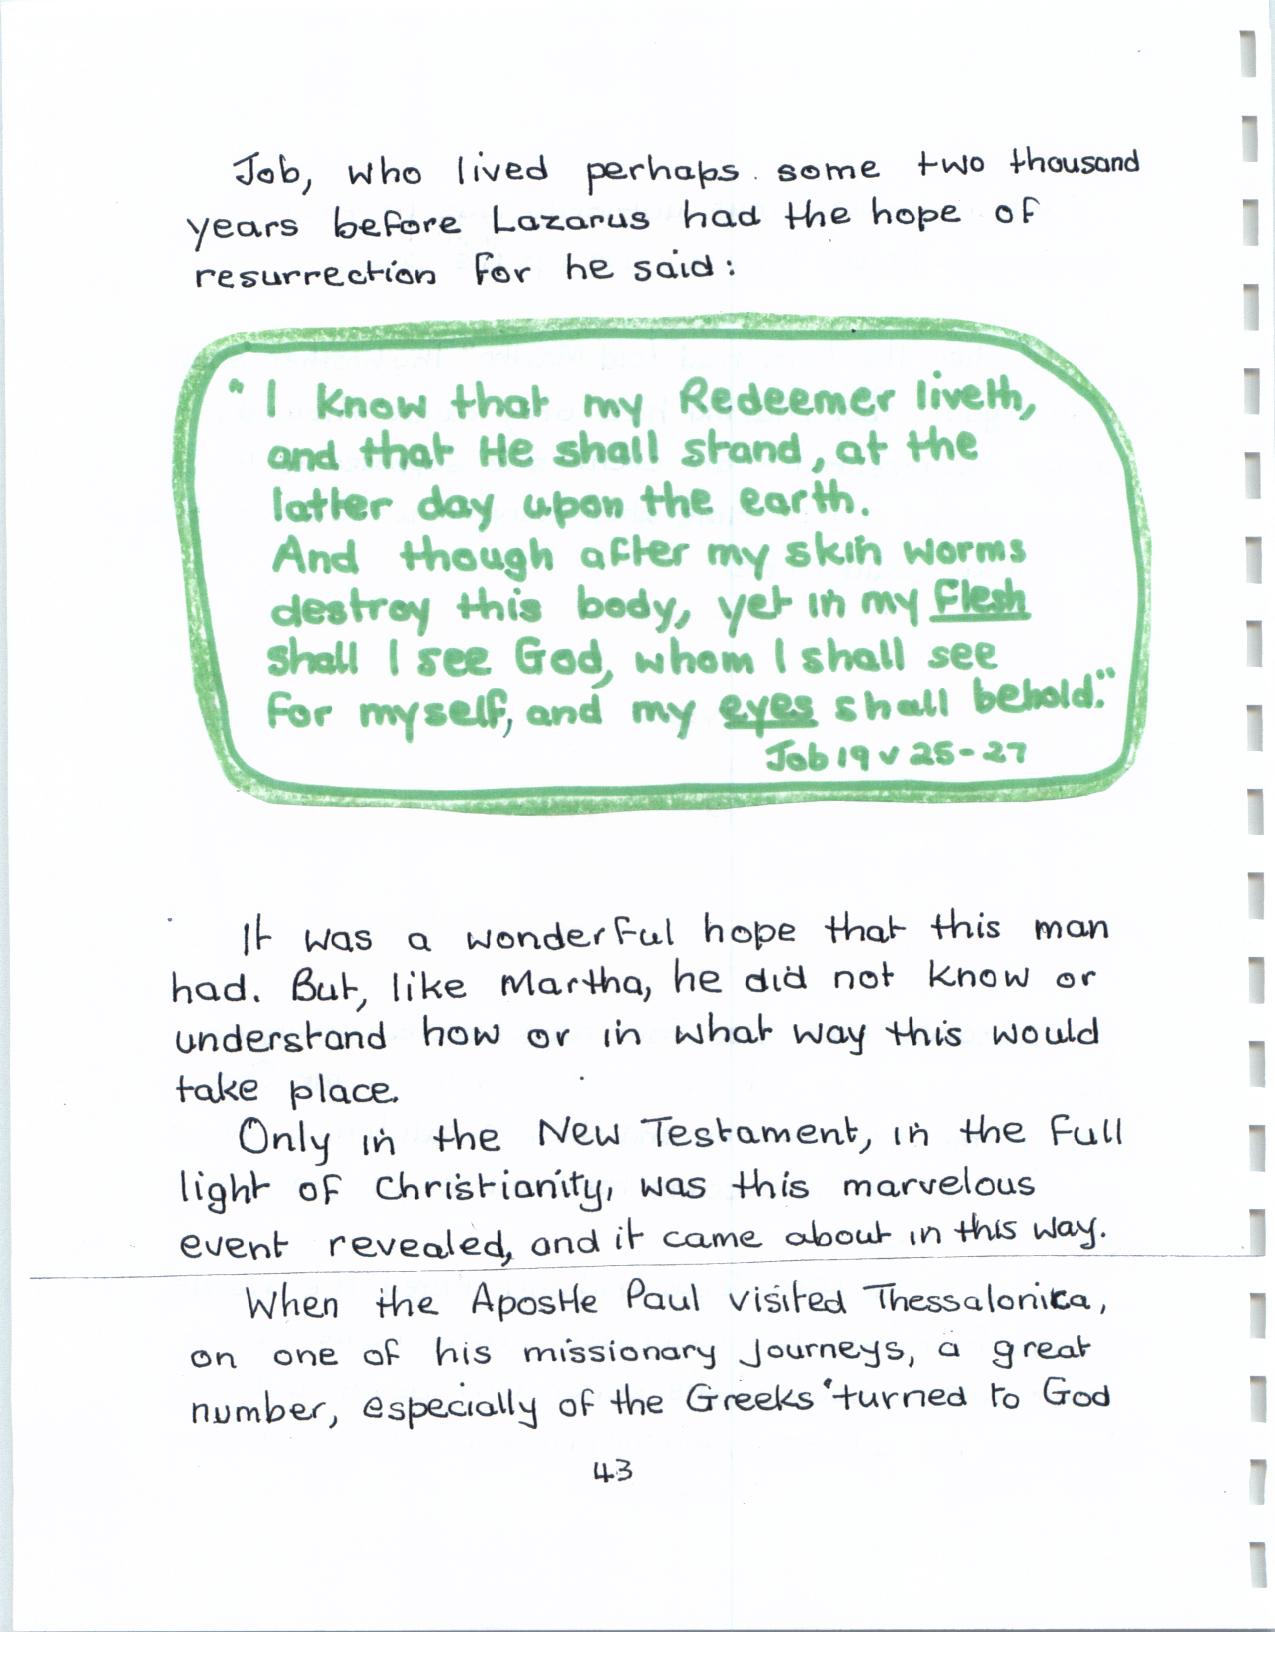 Job, who lived perhaps some two thousand
years before Lazarus had the hope of
resurrection for he said:
"I know that my Redeemer liveth,
and that He shall stand, at the
latter day upon the earth.
And though after my skin worms
destroy this body, yet in my flesh
shall I see God, whom I shall see
for myself, and my eyes shall behold."
Job 19 v 25-27
It was a wonderful hope that this man
had. But, like Martha, he did not know or
understand how or in what way this would
take place.
Only in the New Testament, in the full
light of Christianity, was this marvelous
event revealed, and it came about in this way.
When the Apostle Paul visited Thessalonica,
on one of his missionary journeys, a great
number, especially of the Greeks 'turned to God
43